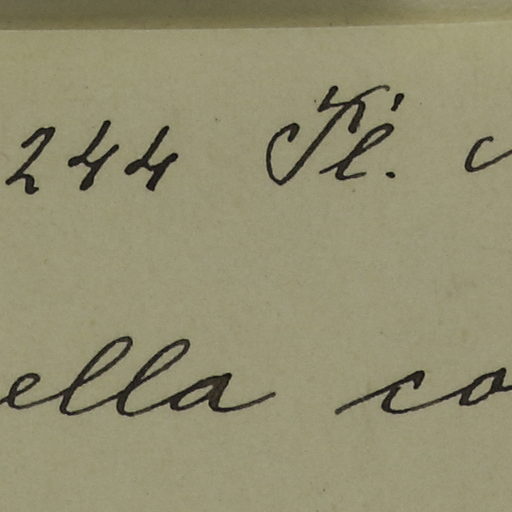 244 Fé.
ella co